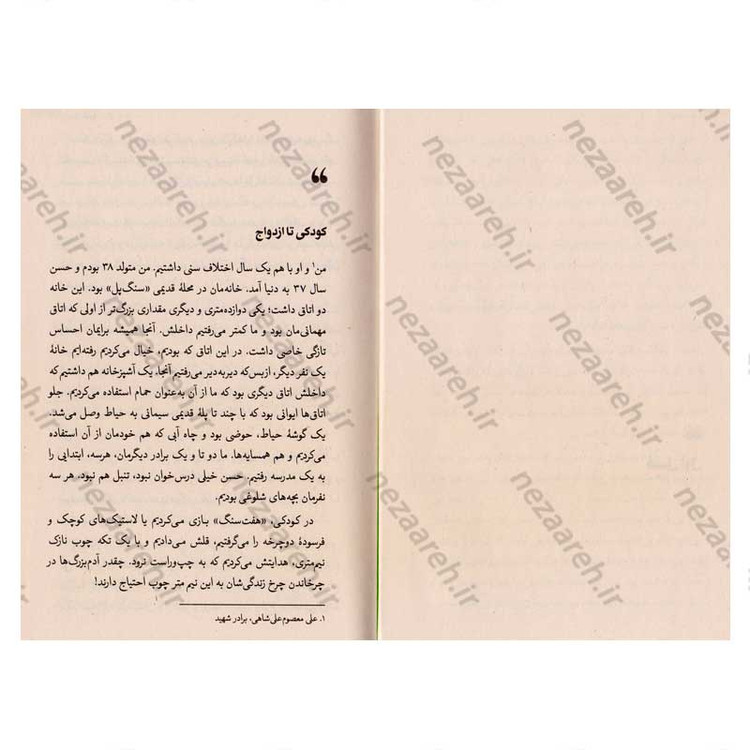 ❝
کودکی تا ازدواج
من۱ و او با هم یک سال اختلاف سنی داشتیم. من متولد ۳۸ بودم و حسن
سال ۳۷ به دنیا آمد. خانه‌مان در محلهٔ قدیمی «سنگ‌پل» بود. این خانه
دو اتاق داشت؛ یکی دوازده‌متری و دیگری مقداری بزرگ‌تر از اولی که اتاق
مهمانی‌مان بود و ما کمتر می‌رفتیم داخلش. آنجا همیشه برایمان احساس
تازگی خاصی داشت. در این اتاق که بودیم، خیال می‌کردیم رفته‌ایم خانهٔ
یک نفر دیگر، ازبس‌که دیربه‌دیر می‌رفتیم آنجا، یک آشپزخانه هم داشتیم که
داخلش اتاق دیگری بود که ما از آن به‌عنوان حمام استفاده می‌کردیم. جلو
اتاق‌ها ایوانی بود که با چند تا پلهٔ قدیمی سیمانی به حیاط وصل می‌شد.
یک گوشهٔ حیاط، حوضی بود و چاه آبی که هم خودمان از آن استفاده
می‌کردیم و هم همسایه‌ها. ما دو تا و یک برادر دیگرمان، هرسه، ابتدایی را
به یک مدرسه رفتیم. حسن خیلی درس‌خوان نبود، تنبل هم نبود. هر سه
نفرمان بچه‌های شلوغی بودیم.
در کودکی، «هفت‌سنگ» بازی می‌کردیم یا لاستیک‌های کوچک و
فرسودهٔ دوچرخه را می‌گرفتیم، قلش می‌دادیم و با یک تکه چوب نازک
نیم‌متری، هدایتش می‌کردیم که به چپ‌وراست نرود. چقدر آدم‌بزرگ‌ها در
چرخاندن چرخ زندگی‌شان به این نیم متر چوب احتیاج دارند!
۱. علی معصوم‌علی‌شاهی، برادر شهید
nezaareh.ir
nezaareh.ir
nezaareh.ir
nezaareh.ir
nezaareh.ir
nezaareh.ir
nezaareh.ir
nezaareh.ir
nezaareh.ir